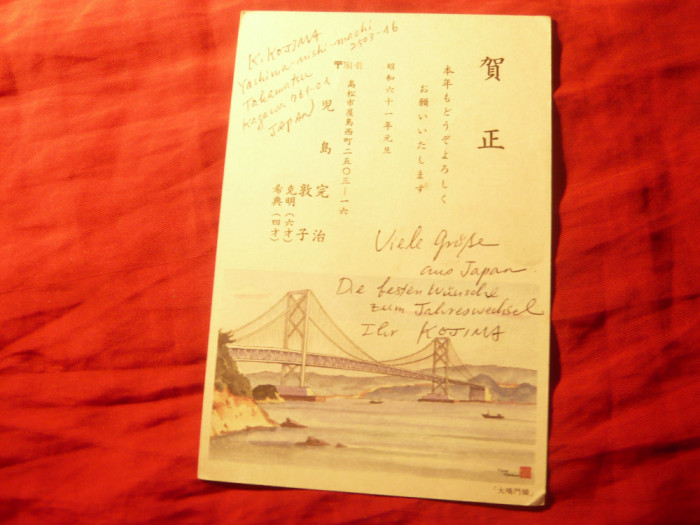 K. KOJIMA
Yashima-nishi-machi
2503-16
Takamatsu
Kagawa 761-01
JAPAN
賀正
本年もどうぞよろしく
お願いいたします
昭和六十一年元旦
〒761-01
高松市屋島西町二五〇三―一六
児島 完治
敦子
克明(六才)
希典(四才)
Viele Grüße
aus Japan
Die besten Wünsche
zum Jahreswechsel
Ihr KOJIMA
「大鳴門橋」